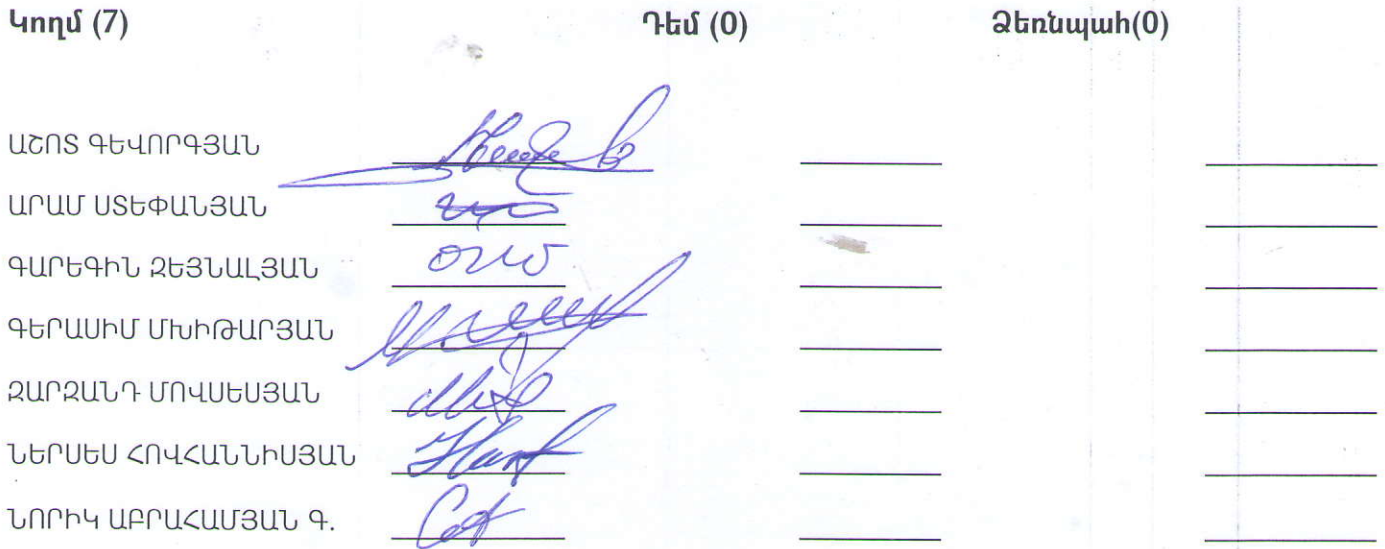 Կողմ (7) Դեմ (0) Ձեռնպահ(0)
ԱՇՈՏ ԳԵՎՈՐԳՅԱՆ
ԱՐԱՄ ՍՏԵՓԱՆՅԱՆ
ԳԱՐԵԳԻՆ ԶԵՅՆԱԼՅԱՆ
ԳԵՐԱՍԻՄ ՄԽԻԹԱՐՅԱՆ
ԶԱՐԶԱՆԴ ՄՈՎՍԵՍՅԱՆ
ՆԵՐՍԵՍ ՀՈՎՀԱՆՆԻՍՅԱՆ
ՆՈՐԻԿ ԱԲՐԱՀԱՄՅԱՆ Գ.